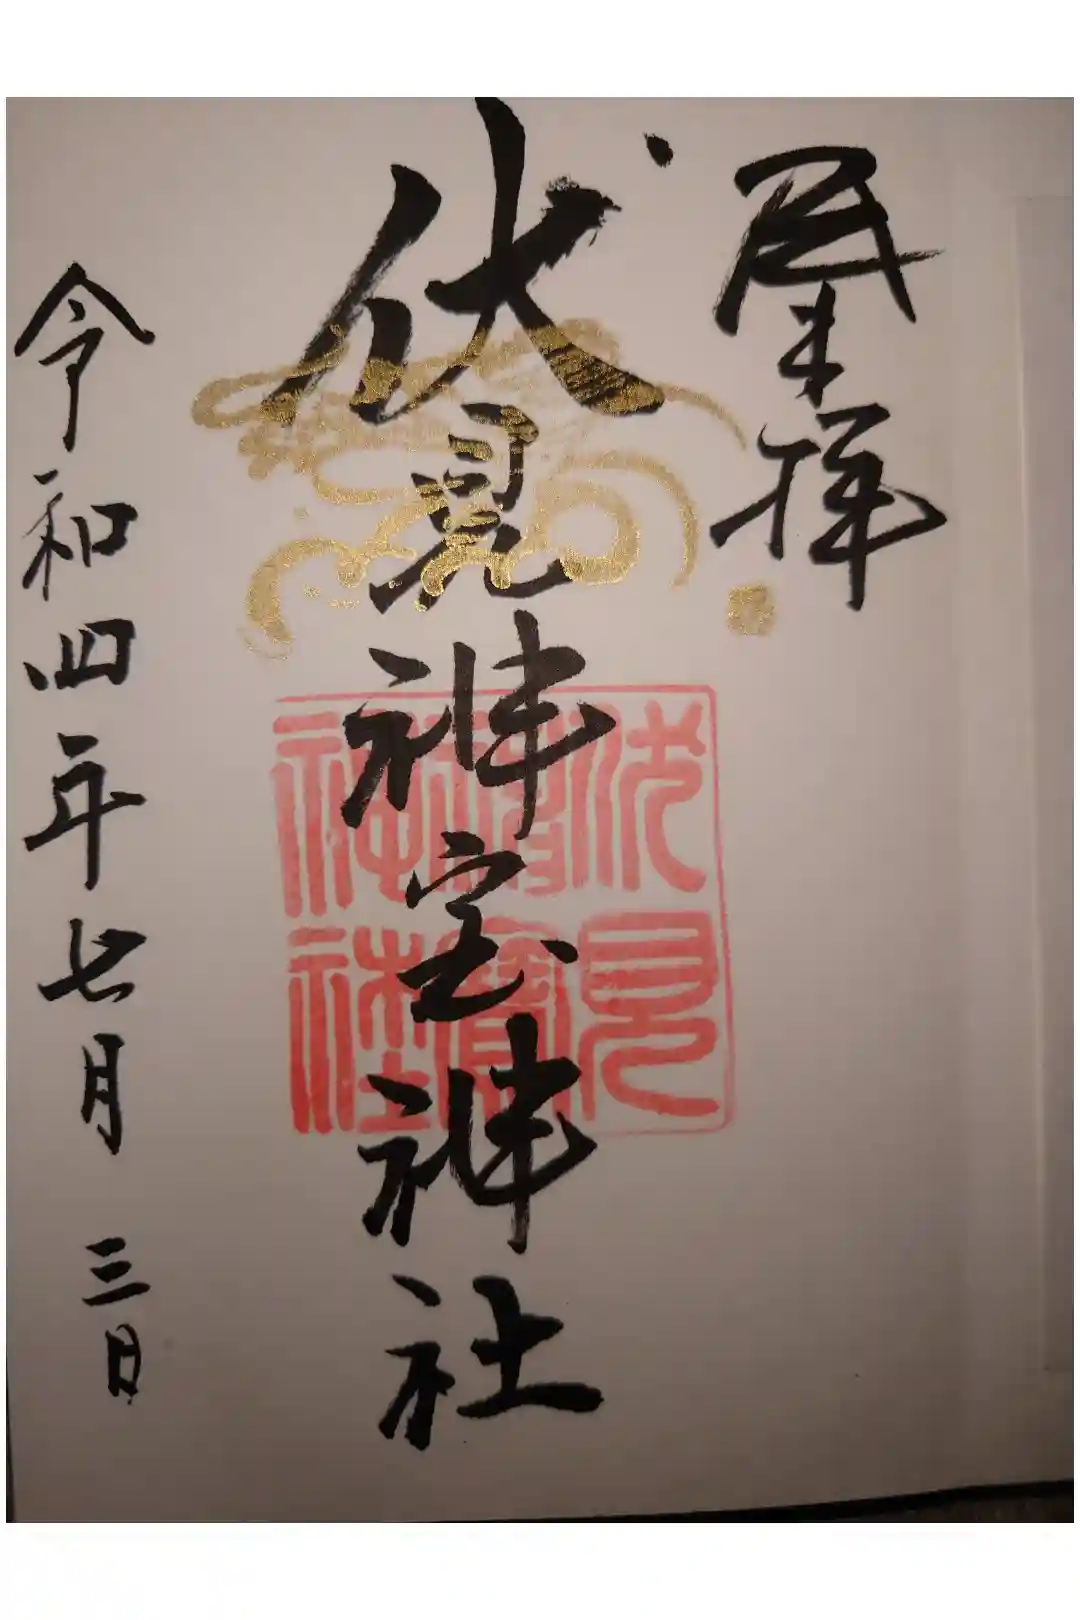 登拝
伏見神宝神社
令和四年七月三日
伏見
神寳
神社